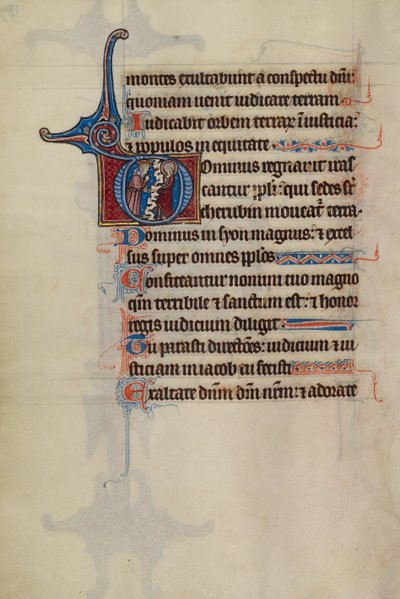 montes exultabunt a conspectu dni:
quoniam uenit iudicare terram
Iudicabit orbem terrar in iusticia:
& populos in equitate
Dominus regnauit iras
cantur ppli: qui sedes sr
cherubin moueatr terra
Dominus in syon magnus: & excel
sus super omnes pplos
Confiteantur nomini tuo magno
qm terribile & sanctum est: & honor
regis iudicium diligit
Tu parasti directoes: iudicium & iu
sticiam in iacob tu fecisti
Exaltate dnm dm nrm: & adorate